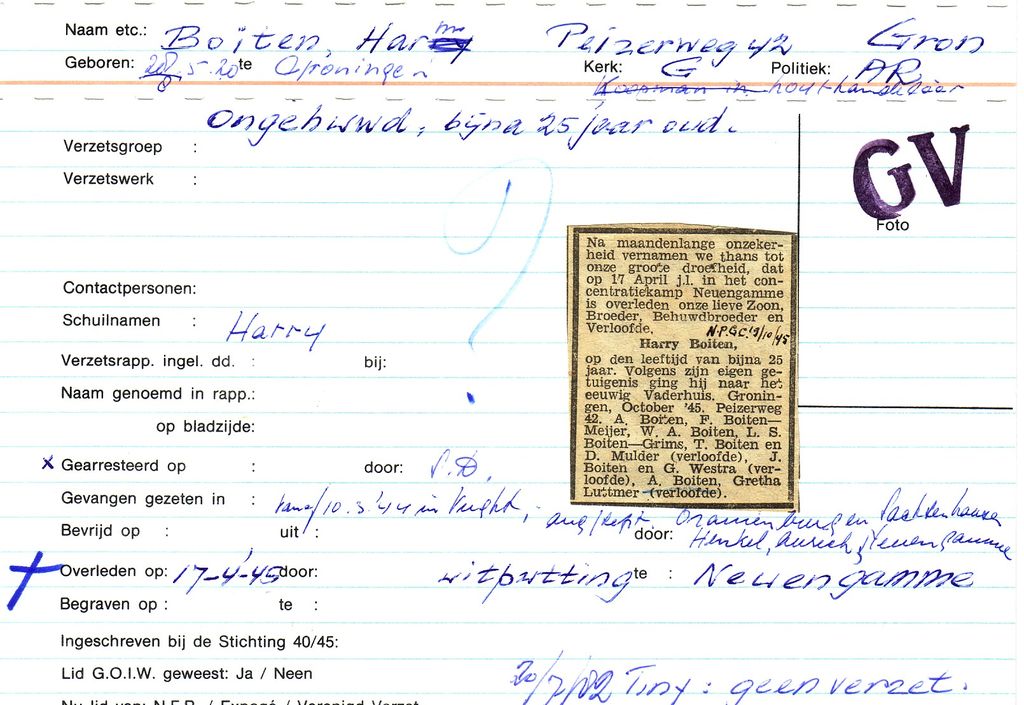 Naam etc.: Boiten, Harm Peizerweg 42 Gron
Geboren: 28.5.20 te Groningen Kerk: G Politiek: AR
Koopman in houthandelaar
Ongehuwd, bijna 25 jaar oud.
Verzetsgroep :
Verzetswerk :
?
GV
Foto
Contactpersonen:
Schuilnamen : Harry
Verzetsrapp. ingel. dd. : bij:
Naam genoemd in rapp.:
op bladzijde:
Na maandenlange onzeker-
heid vernamen we thans tot
onze groote droefheid, dat
op 17 April j.l. in het con-
centratiekamp Neuengamme
is overleden onze lieve Zoon,
Broeder, Behuwdbroeder en
Verloofde, N.P.G.C. 19/10/45
Harry Boiten,
op den leeftijd van bijna 25
jaar. Volgens zijn eigen ge-
tuigenis ging hij naar het
eeuwig Vaderhuis. Gronin-
gen, October '45. Peizerweg
42. A. Boiten, F. Boiten—
Meijer, W. A. Boiten, L. S.
Boiten—Grims, T. Boiten en
D. Mulder (verloofde), J.
Boiten en G. Westra (ver-
loofde), A. Boiten, Gretha
Luttmer (verloofde).
x Gearresteerd op : door: S.D.
Gevangen gezeten in : vanaf 10.3.'44 in Vught, aug/sept. Oranienburg en Sachsenhausen
Bevrijd op : uit : door: Henkel, Aurich, Neuengamme
Overleden op: 17-4-'45 door: uitputting te : Neuengamme
Begraven op : te :
Ingeschreven bij de Stichting 40/45:
Lid G.O.I.W. geweest: Ja / Neen
20/7/'82 Tiny: geen verzet.
Nu lid van: N.F.R. / Expogé / Verenigd Verzet